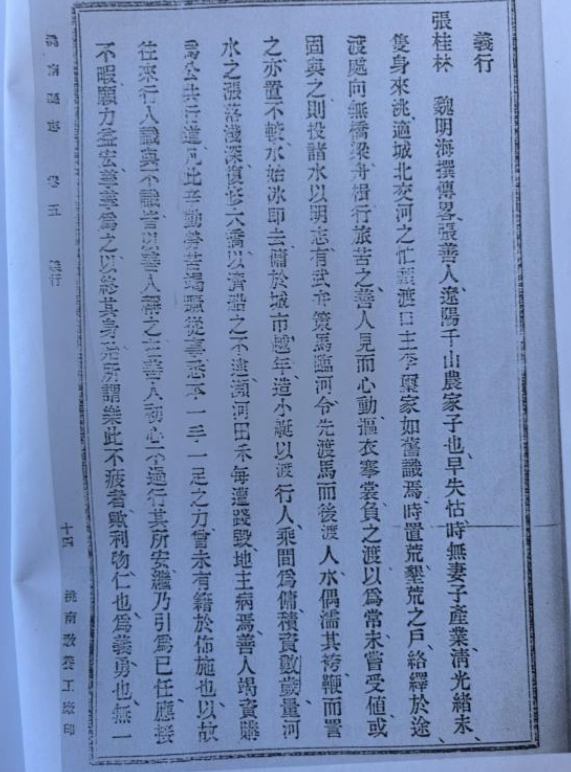 義行
張桂林　魏明海撰傳畧張善人遼陽千山農家子也早失怙時無妻子產業淸光緒末
隻身來洮適城北交河之忙牛渡口主李家如舊識焉時置荒墾荒之戶絡繹於途
渡處向無橋梁舟楫行旅苦之善人見而心動漚衣搴裳負之渡以爲常未嘗受値或
固與之則投諸水以明志有武弁策馬臨河令先渡馬而後渡人水偶濡其袴鞭而詈
之亦置不較水始冰卽去傭於城市越年造小艇以渡行人乘間爲傭積資數歲量河
水之漲落淺深復修大橋以濟船之不逮瀕河田禾每遭踐毀地主病焉善人竭資購
爲公共行道凡此辛勤勞苦竭蹶從事悉本一手一足之力曾未有藉於佈施也以故
往來行人識與不識皆以善人稱之在善人初心不過行其所安繼乃引爲已任應接
不暇願力益宏善業爲之以終其身先所謂樂此不疲者歟利物仁也爲義勇也無一
洮南縣志　卷五　義行　十四　洮南敎養工廠印